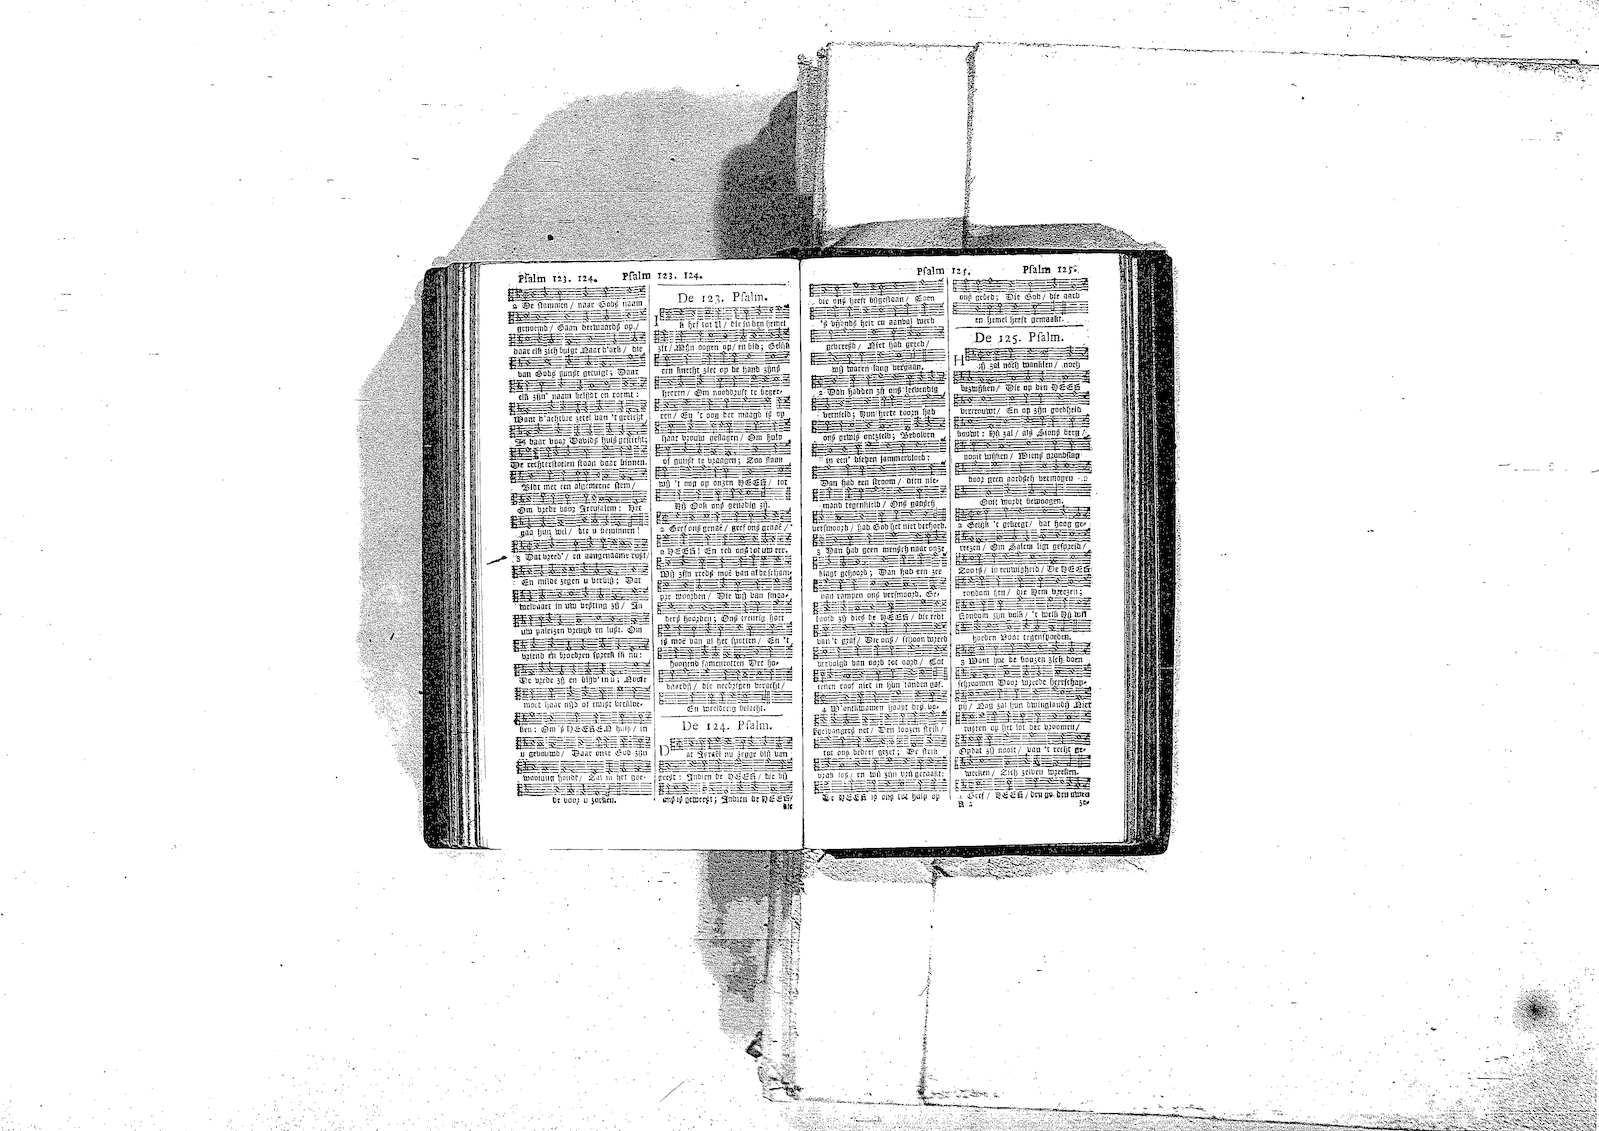 Psalm 123. 124.
Psalm 123. 124.
2 De stammen/ naar Gods naam
genoemd/ Gaan derwaards op/
daar elk zich buigt Naar d'ark/ die
van Gods gunst getuigt; Daar
elk zijn' naam belijdt en roemt:
Want d'achtbre zetel van 't gericht
Is daar voor Davids huis gesticht;
De rechterstoelen staan daar binnen.
Bidt met een algemeene stem/
Om vrede voor Jerusalem: Het
gaa hun wel/ die u beminnen!
3 Dat vreed'/ en aangenaame rust/
En milde zegen u verblij; Dat
welvaart in uw vesting zij/ In
uw paleizen vreugd en lust. Om
vriend en broedren spreek ik nu:
De vrede zij en blijv' in u; Nooit
moet haar nijd of twist verdwe-
nen: Om 's HEEREN huis/ in
u gebouwd/ Daar onze God zijn
wooning houdt/ Zal ik het goe-
de voor u zoeken.
De 123. Psalm.
Ik hef tot U/ die in den hemel
zit/ Mijn oogen op/ en bid; Gelijk
een knecht ziet op de hand zijns
heeren/ Om nooddruft te begee-
ren/ En 't oog der maagd is op
haar vrouw geslagen/ Om hulp
of gunst te vraagen; Zoo slaan
wij 't oog op onzen HEER/ tot
Hij Ook ons genadig zij.
2 Geef ons genaê/ geef ons genaê/
o HEER! En red ons tot uw eer.
Wij zijn reeds moê van al de scham-
pre woorden/ Die wij van smaa-
ders hoorden; Ons treurig hart
is moê van al het spotten/ En 't
hoonend samenrotten Der ho-
vaardij/ die nedrigen veracht/
En weeldrig belacht.
De 124. Psalm.
Dat Israël nu zegge blij van
geest: Indien de HEER/ die bij
ons is geweest; Indien de HEER/
die
Psalm 125.
Psalm 125.
die ons heeft bijgestaan/ Toen
's vijands heir en aanval werd
gevreesd/ Niet had gered/
wij waren lang vergaan.
2 Dan hadden zij ons leevendig
vernield; Hun heete toorn had
ons gewis ontzield; Bedolven
in een' diepen jammervloed:
Dan had een stroom/ dien nie-
mand tegenhield/ Ons gansch
versmoord/ had God het niet verhoed.
3 Dan had geen mensch naar onze
klagt gehoord; Dan had een zee
van rampen ons versmoord. Ge-
loofd zij dies de HEER/ die redt
van 't graf/ Die ons/ schoon wreed
vervolgd van oord tot oord/ Tot
eenen roof niet in hun tanden gaf.
4 W'ontkwamen haast des vo-
gelvangers net/ Den loozen strik/
tot ons bederf gezet; De strik
brak los/ en wij zijn vrij geraakt:
De HEER is ons tot hulp op
ons gebed; Die God/ die aard
en hemel heeft gemaakt.
De 125. Psalm.
Hij zal noch wanklen/ noch
bezwijken/ Die op den HEER
vertrouwt/ En op zijn goedheid
bouwt: Hij zal/ als Sions berg/
nooit wijken/ Wiens grondslag
door geen aardsch vermogen
Ooit wordt bewoogen.
2 Gelijk 't gebergt/ dat hoog ge-
reezen/ Om Salem ligt gespreid/
Zoo is/ in eeuwigheid/ De HEER
rondom hen/ die Hem vreezen;
Rondom zijn volk/ 't welk Hij wil
hoeden Voor tegenspoeden.
3 Want hoe de boozen zich doen
schroomen Voor wreede heerschap-
pij/ Nog zal hun dwinglandij Niet
rusten op het lot der vroomen/
Opdat zij nooit/ van 't recht ge-
weeken/ Zich zelven wreeken.
4 Geef/ HEER/ den
K 2